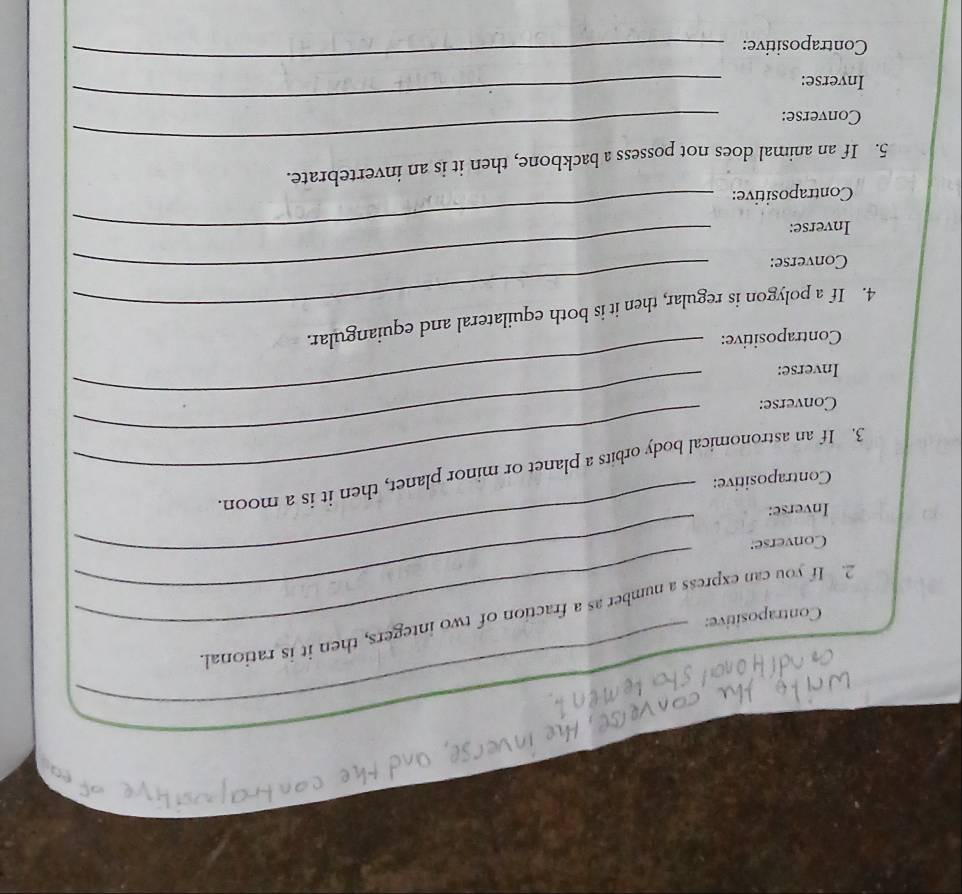 Write the converse, the inverse, and the contrapositive of
conditional statement.
Contrapositive:
2. If you can express a number as a fraction of two integers, then it is rational.
Converse:
Inverse:
Contrapositive:
3. If an astronomical body orbits a planet or minor planet, then it is a moon.
Converse:
Inverse:
Contrapositive:
4. If a polygon is regular, then it is both equilateral and equiangular.
Converse:
Inverse:
Contrapositive:
5. If an animal does not possess a backbone, then it is an invertebrate.
Converse:
Inverse:
Contrapositive: